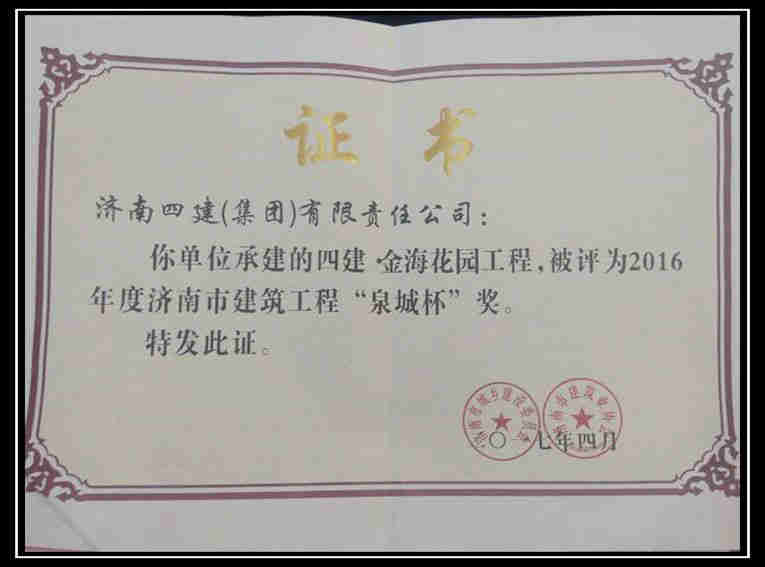 证 书
济南四建(集团)有限责任公司:
你单位承建的四建·金海花园工程,被评为2016
年度济南市建筑工程“泉城杯”奖。
特发此证。
济南市城乡建设委员会
济南市建筑业协会
〇 七年四月